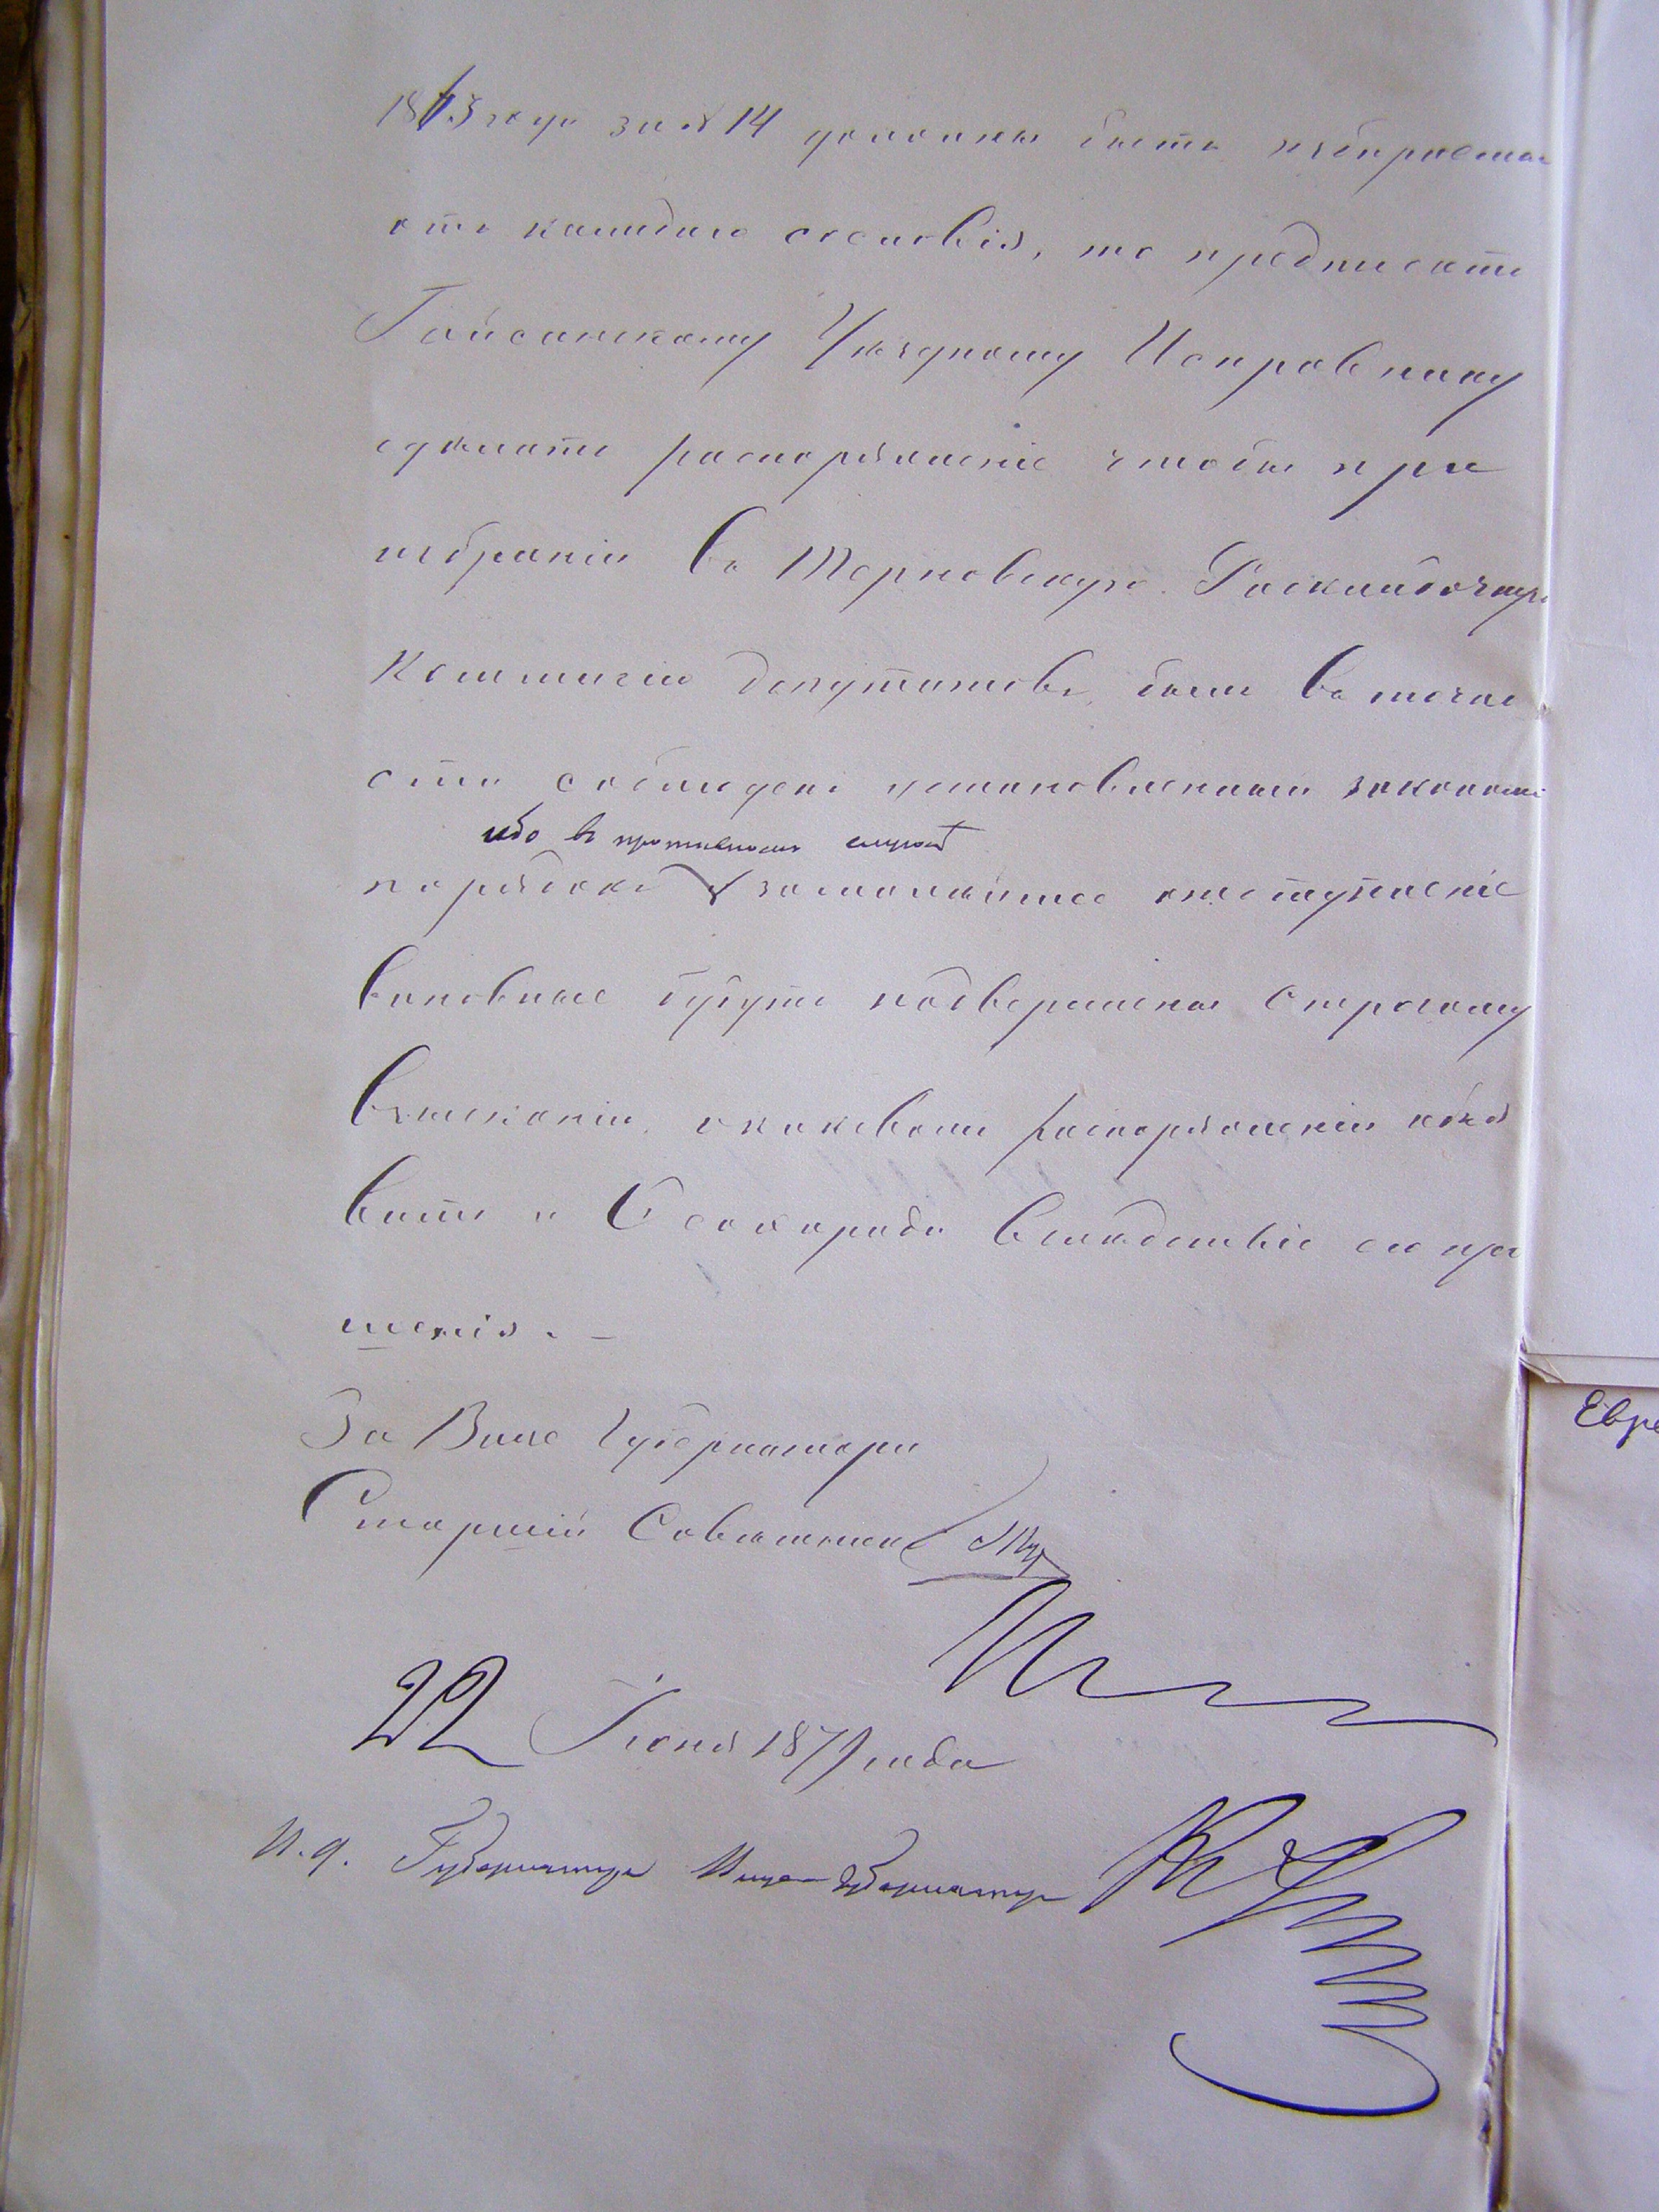 1873 года за № 14 должны быть избираемы
отъ каждаго сословія, то предписать
Гайсинскому Уѣздному Исправнику
сдѣлать распоряженіе чтобы при
избраніи въ Терновскую Раскладочную
Коммисію депутатовъ, былъ въ точно
сти соблюденъ установленный закономъ
ибо въ противномъ случаѣ
порядокъ за малѣйшее отступленіе
виновные будутъ подвержены строгому
взысканію, о каковомъ распоряженіи объя
вить и
шенія. —
За Вице Губернатора
Старшій Совѣтникъ
22 Іюня 1877 года
И. д. Губернатора Вице-Губернаторъ
Евре